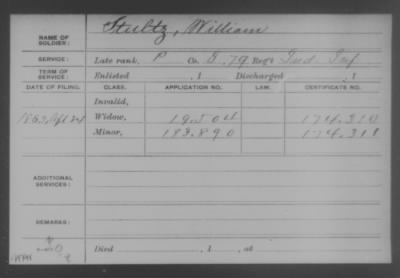 NAME OF SOLDIER: Stultz, William
SERVICE: Late rank, P Co. 79 Reg't Ind Inf
TERM OF SERVICE: Enlisted , 1 Discharged , 1
DATE OF FILING. CLASS. APPLICATION NO. LAW. CERTIFICATE NO.
Invalid,
Widow, 174.310
Minor, 183.890 174.311
ADDITIONAL SERVICES:
REMARKS:
Died , 1 , at